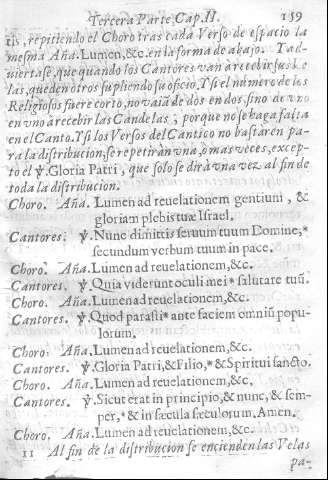 Tercera Parte, Cap. II. 159
tis, repitiendo el Choro tras cada Verso de espacio la
mesma Aña. Lumen, &c. en la forma de abajo. Y ad-
uiertase, que quando los Cantores van a recebir sus Ve
las, queden otros supliendo su oficio. Y si el numero de los
Religiosos fuere corto, no vaia de dos en dos, sino de vno
en vno a recebir las Candelas; porque no se haga falta
en el Canto. Y si los Versos del Cantico no bastarẽ pa-
ra la distribucion, se repetiràn vna, ò mas veces, excep-
to el ℣. Gloria Patri, que solo se dirà vna vez al fin de
toda la distribucion.
Choro. Aña. Lumen ad reuelationem gentium, &
gloriam plebis tuæ Israel.
Cantores. ℣. Nunc dimittis seruum tuum Domine, *
secundum verbum tuum in pace.
Choro. Aña. Lumen ad reuelationem, &c.
Cantores. ℣. Quia viderunt oculi mei * salutare tuũ.
Choro. Aña. Lumen ad reuelationem, &c.
Cantores. ℣. Quod parasti * ante faciem omniũ popu-
lorum.
Choro. Aña. Lumen ad reuelationem, &c.
Cantores. ℣. Gloria Patri, & Filio, * & Spiritui sancto.
Choro. Aña. Lumen ad reuelationem, &c.
Cantores. ℣. Sicut erat in principio, & nunc, & sem-
per, * & in sæcula sæculorum. Amen.
Choro. Aña. Lumen ad reuelationem, &c.
11 Al fin de la distribucion se encienden las Velas
pa-